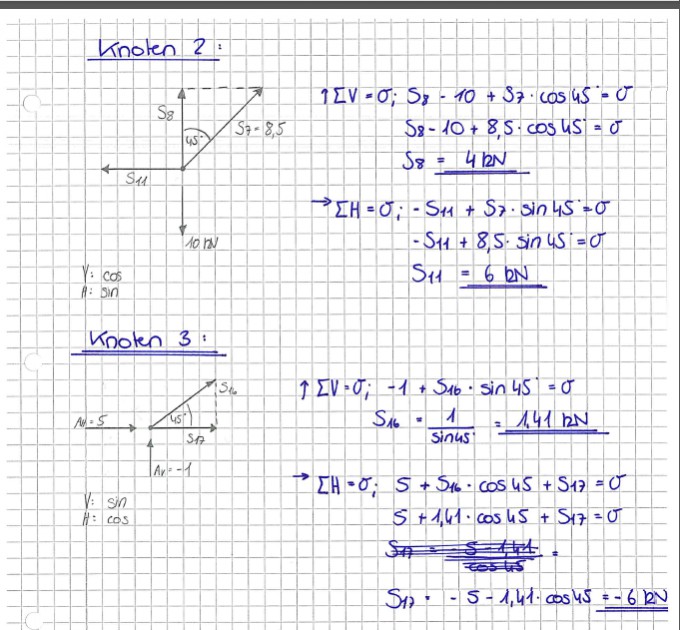 Knoten 2 :
S8
45°
S7 = 8,5
S11
10 kN
V: cos
H: sin
↑ΣV = 0; S8 - 10 + S7 · cos 45° = 0
S8 - 10 + 8,5 · cos 45° = 0
S8 = 4 kN
→ΣH = 0; - S11 + S7 · sin 45° = 0
- S11 + 8,5 · sin 45° = 0
S11 = 6 kN
Knoten 3 :
S16
AH = 5
45°
S17
Av = -1
V: sin
H: cos
↑ΣV = 0; -1 + S16 · sin 45° = 0
S16 = 1 / sin 45° = 1,41 kN
→ΣH = 0; 5 + S16 · cos 45 + S17 = 0
5 + 1,41 · cos 45 + S17 = 0
S17 = - 5 - 1,41 / cos 45 =
S17 = - 5 - 1,41 · cos 45 = - 6 kN